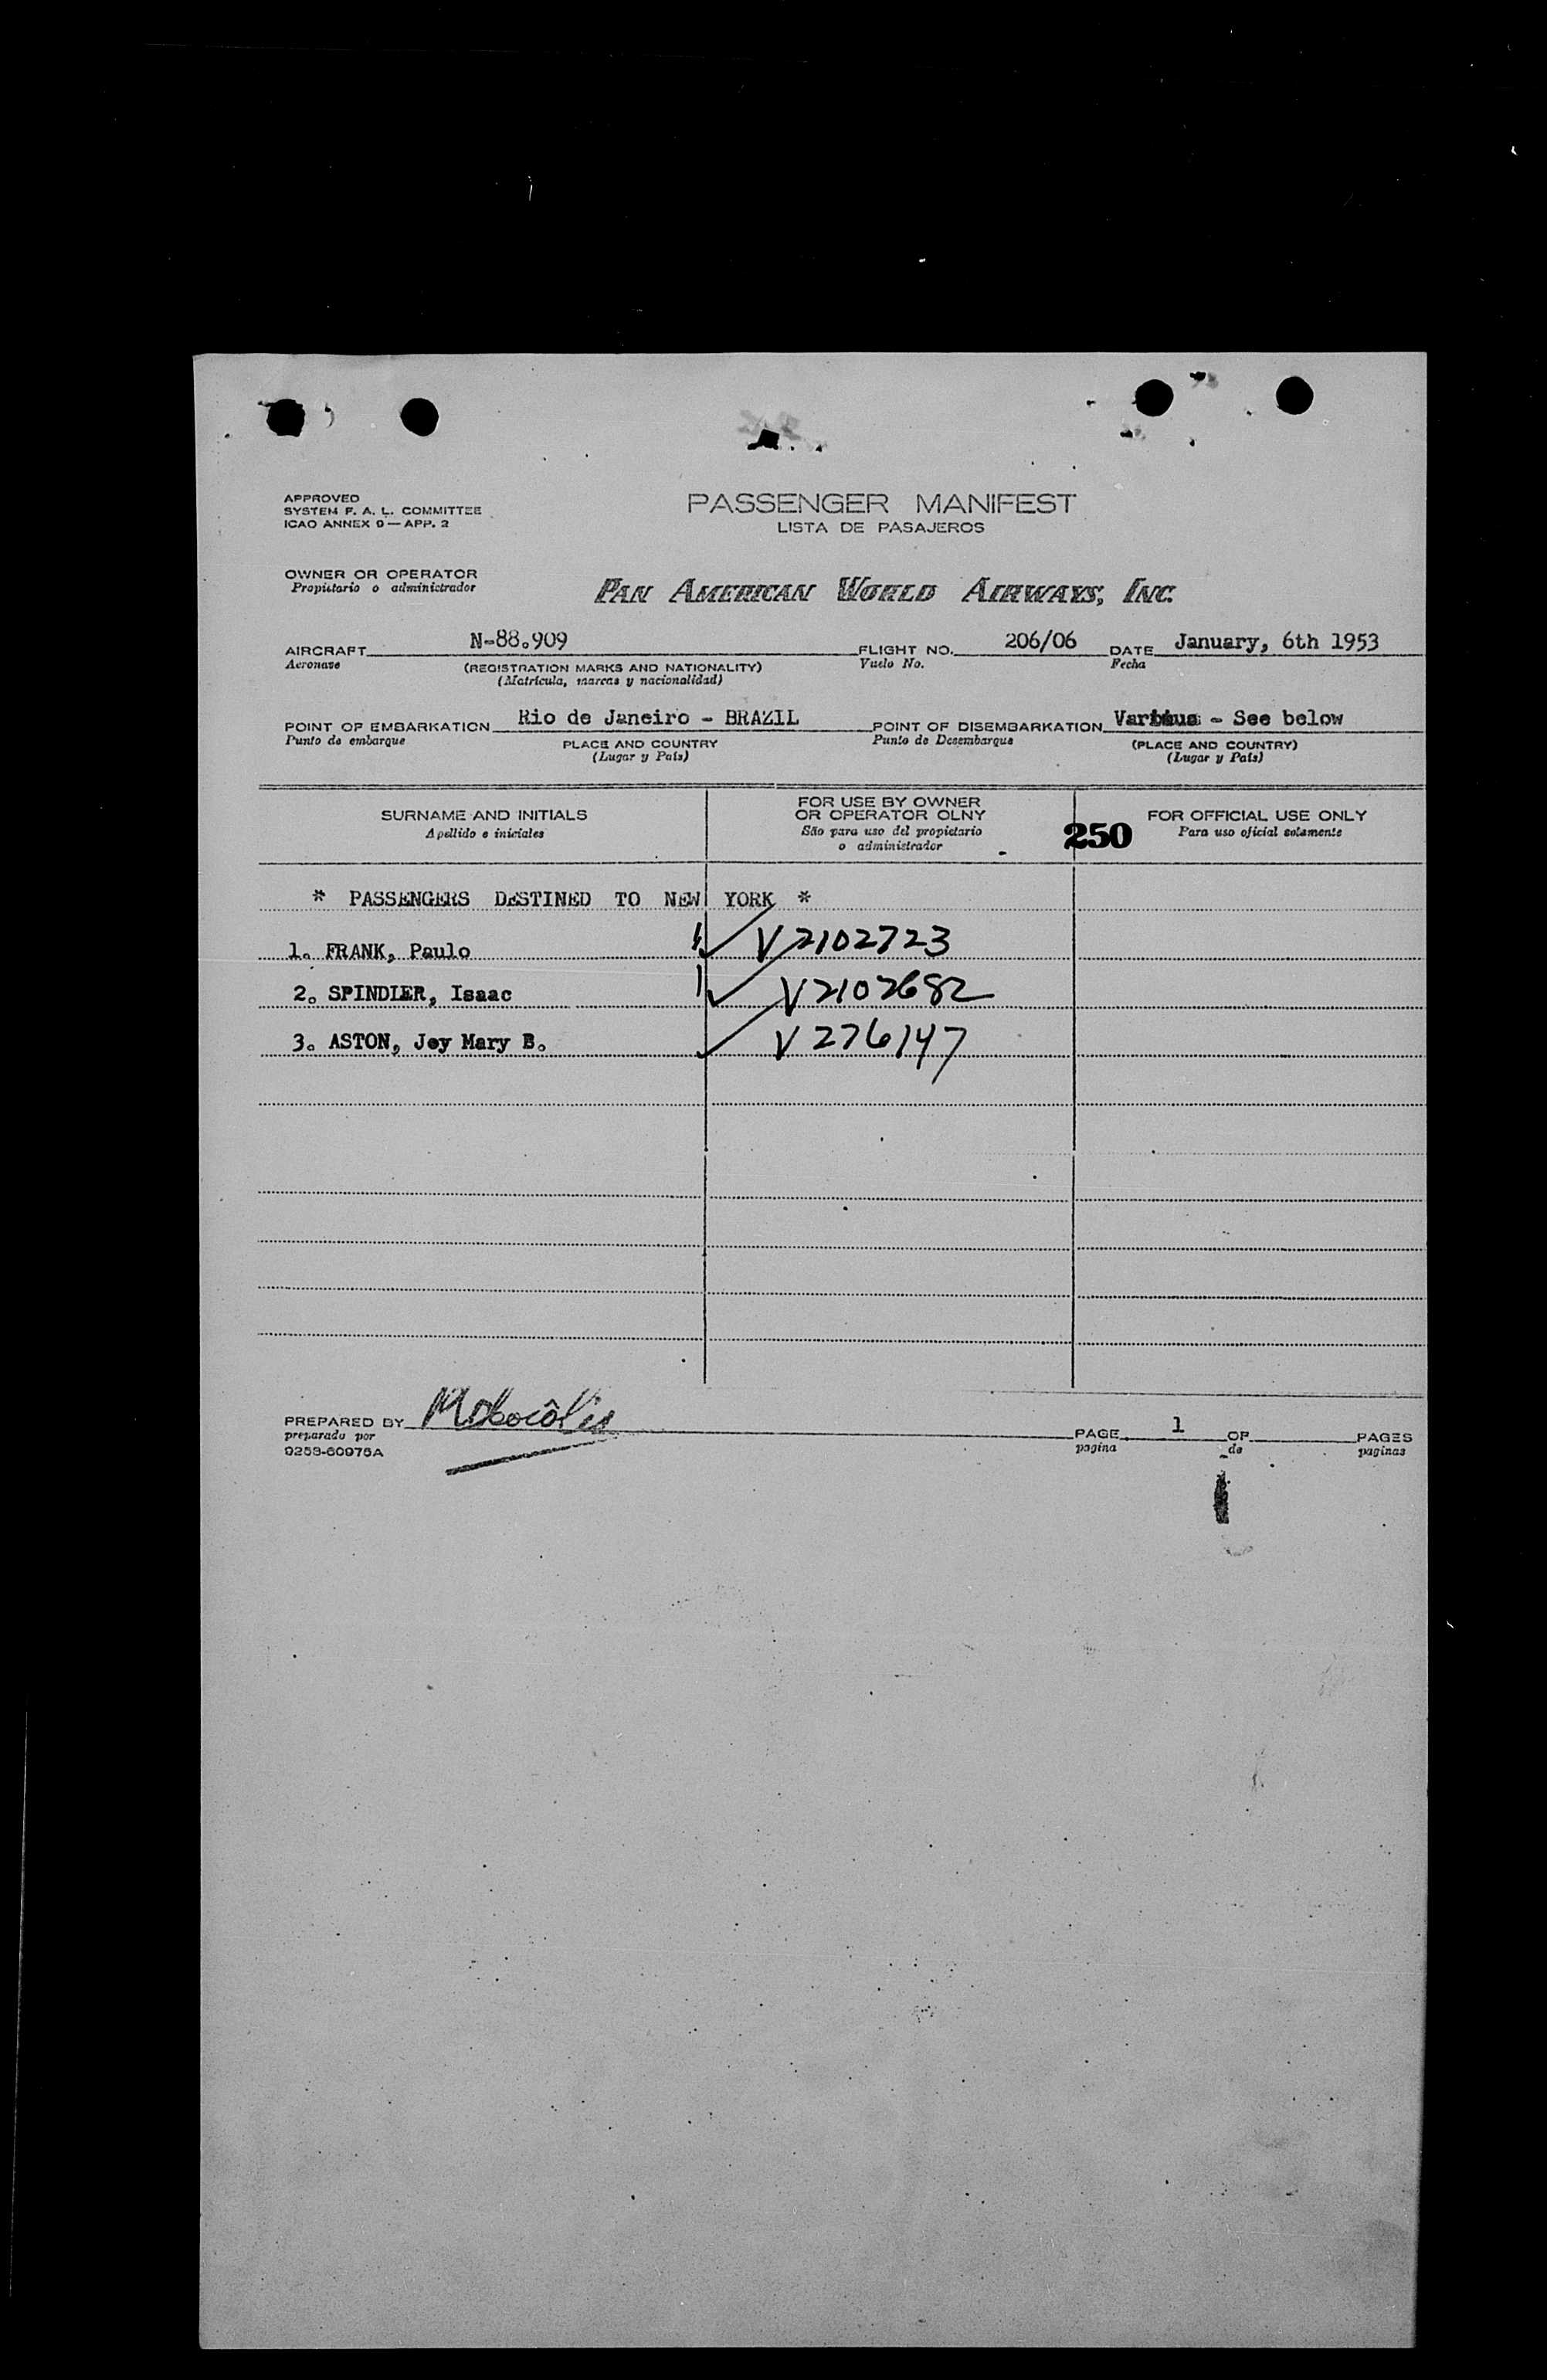 APPROVED
SYSTEM F. A. L. COMMITTEE
ICAO ANNEX 9 — APP. 2
PASSENGER MANIFEST
LISTA DE PASAJEROS
OWNER OR OPERATOR
Propietario o administrador
PAN AMERICAN WORLD AIRWAYS, INC.
AIRCRAFT N-88.909 FLIGHT NO. 206/06 DATE January, 6th 1953
Aeronave (REGISTRATION MARKS AND NATIONALITY) Vuelo No. Fecha
(Matrícula, marcas y nacionalidad)
POINT OF EMBARKATION Rio de Janeiro - BRAZIL POINT OF DISEMBARKATION Various - See below
Punto de embarque PLACE AND COUNTRY Punto de Desembarque (PLACE AND COUNTRY)
(Lugar y País) (Lugar y País)
SURNAME AND INITIALS
Apellido e iniciales
FOR USE BY OWNER
OR OPERATOR OLNY
São para uso del propietario
o administrador
250
FOR OFFICIAL USE ONLY
Para uso oficial solamente
* PASSENGERS DESTINED TO NEW YORK *
1. FRANK, Paulo V2102723
2. SPINDLER, Isaac V2102682
3. ASTON, Joy Mary B. V276147
PREPARED BY
preparado por
0253-60975A
PAGE 1 OF PAGES
pagina de paginas